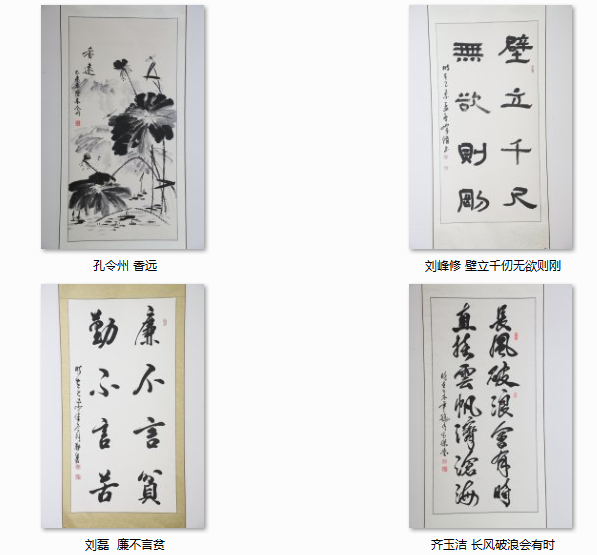 香遠
孔令州 香远
壁立千尺
無欲則剛
刘峰修 壁立千仞无欲则刚
廉不言貧
勤不言苦
刘磊 廉不言贫
長風破浪會有時
直挂雲帆濟滄海
齐玉洁 长风破浪会有时